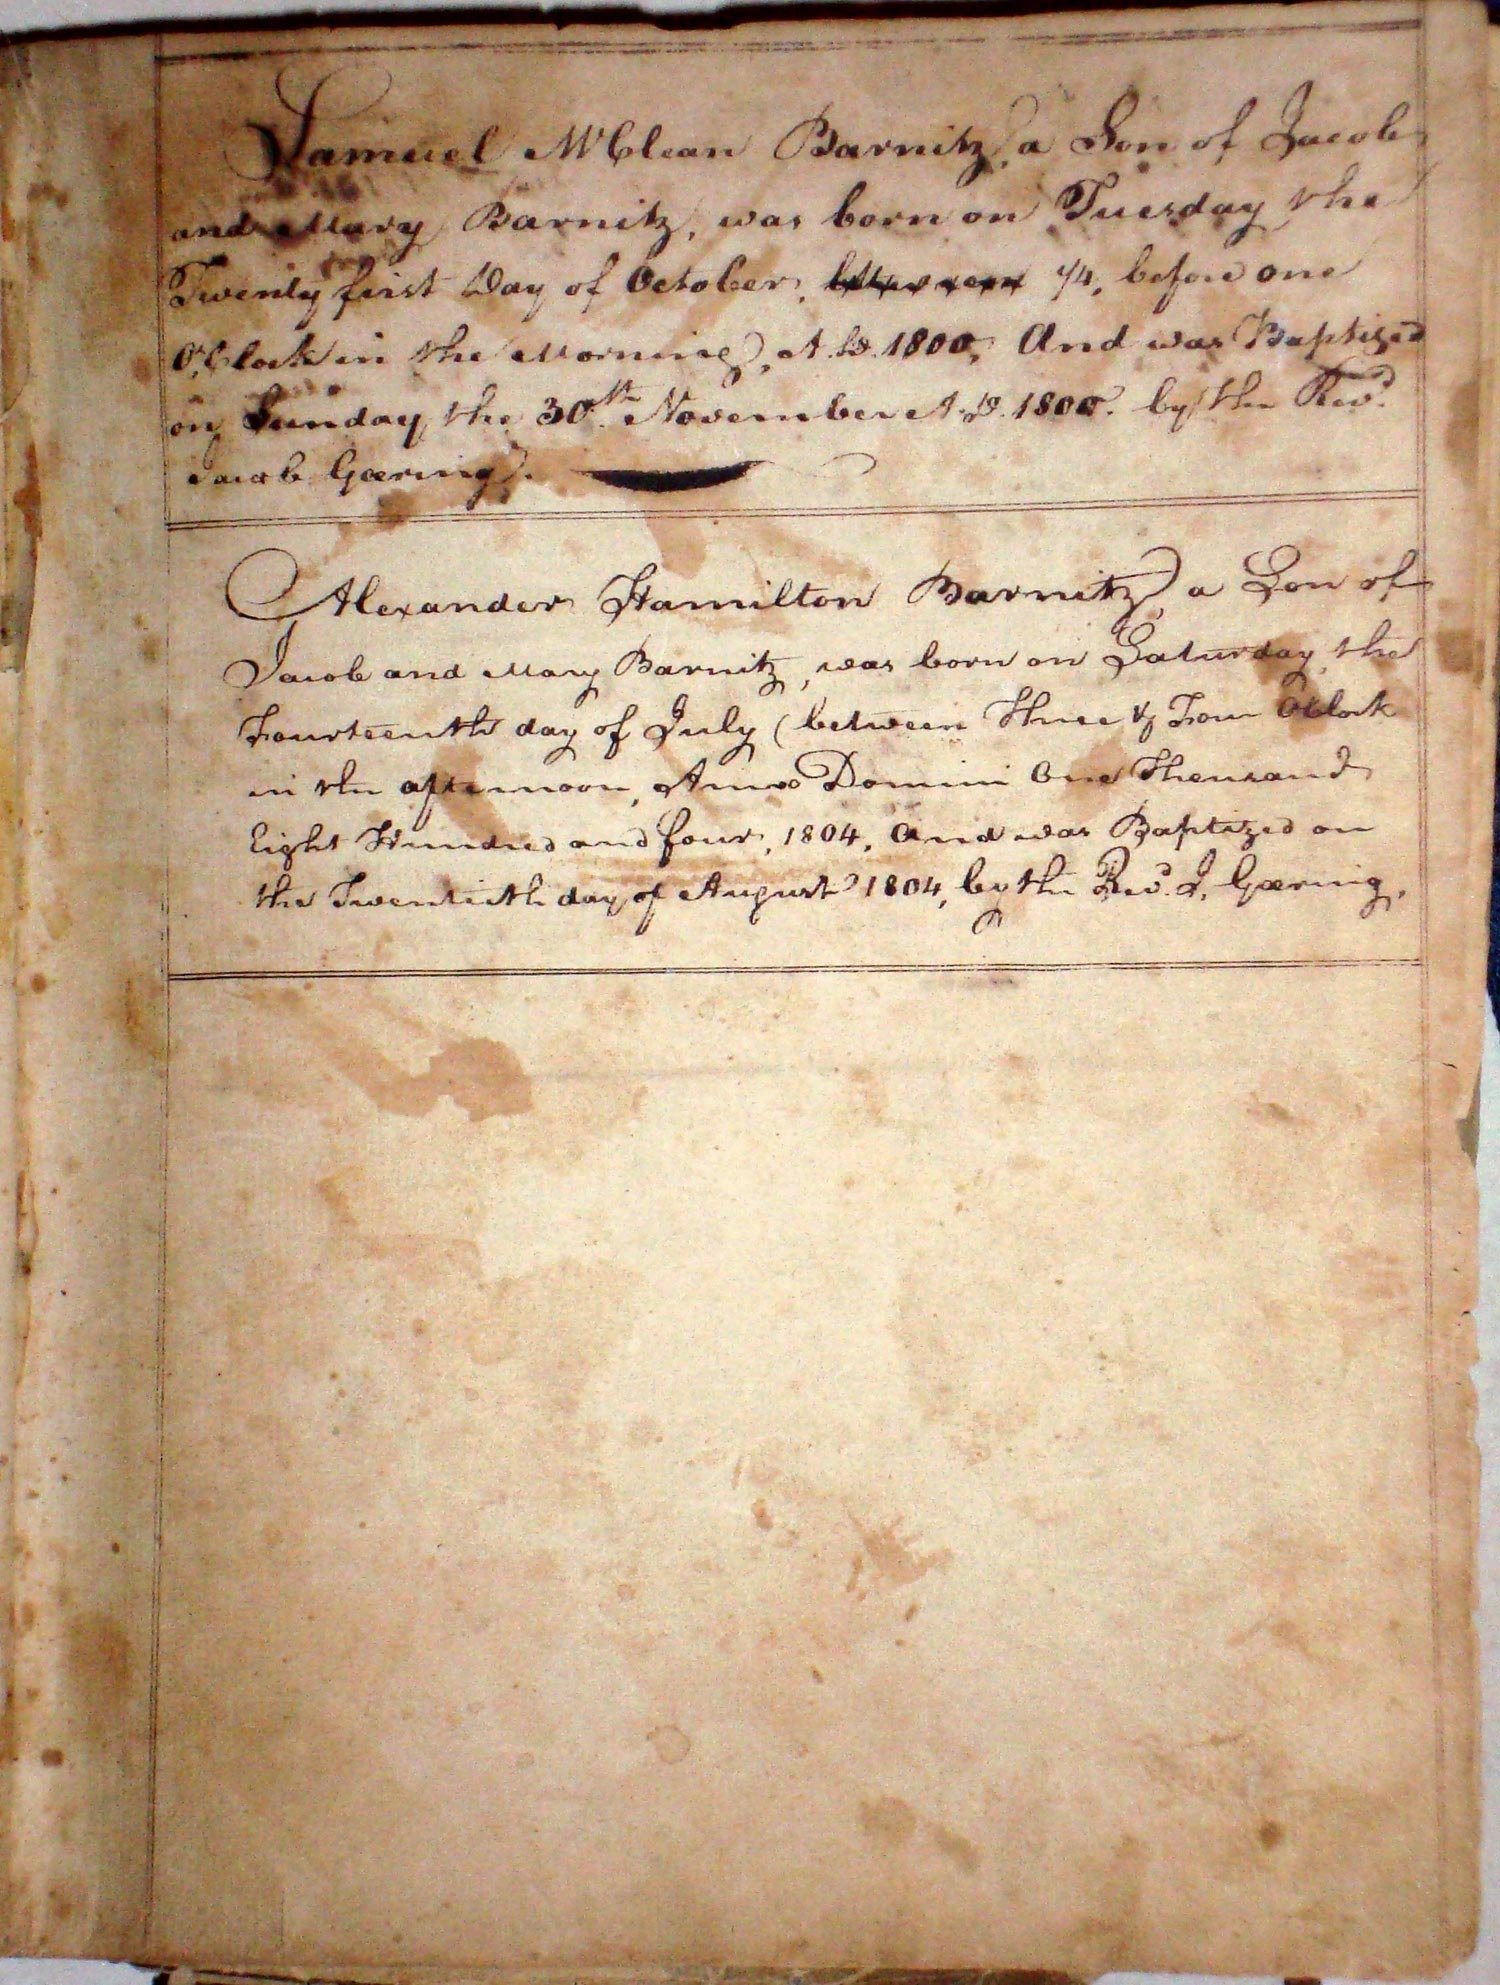 Samuel McClean Barnitz, a Son of Jacob
and Mary Barnitz, was born on Tuesday the
Twenty first Day of October, between 1/4, before one
O,Clock in the Morning, A.D. 1800, And was Baptized
on Sunday the 30th. November A.D. 1800. by the Revd.
Jacob Gœring.
Alexander Hamilton Barnitz, a Son of
Jacob and Mary Barnitz, was born on Saturday the
Fourteenth day of July (between Three & Four OClock
in the afternoon, Anno Domini One Thousand
Eight Hundred and four, 1804, And was Baptized on
the Twentieth day of August 1804, by the Revd. J. Gœring.